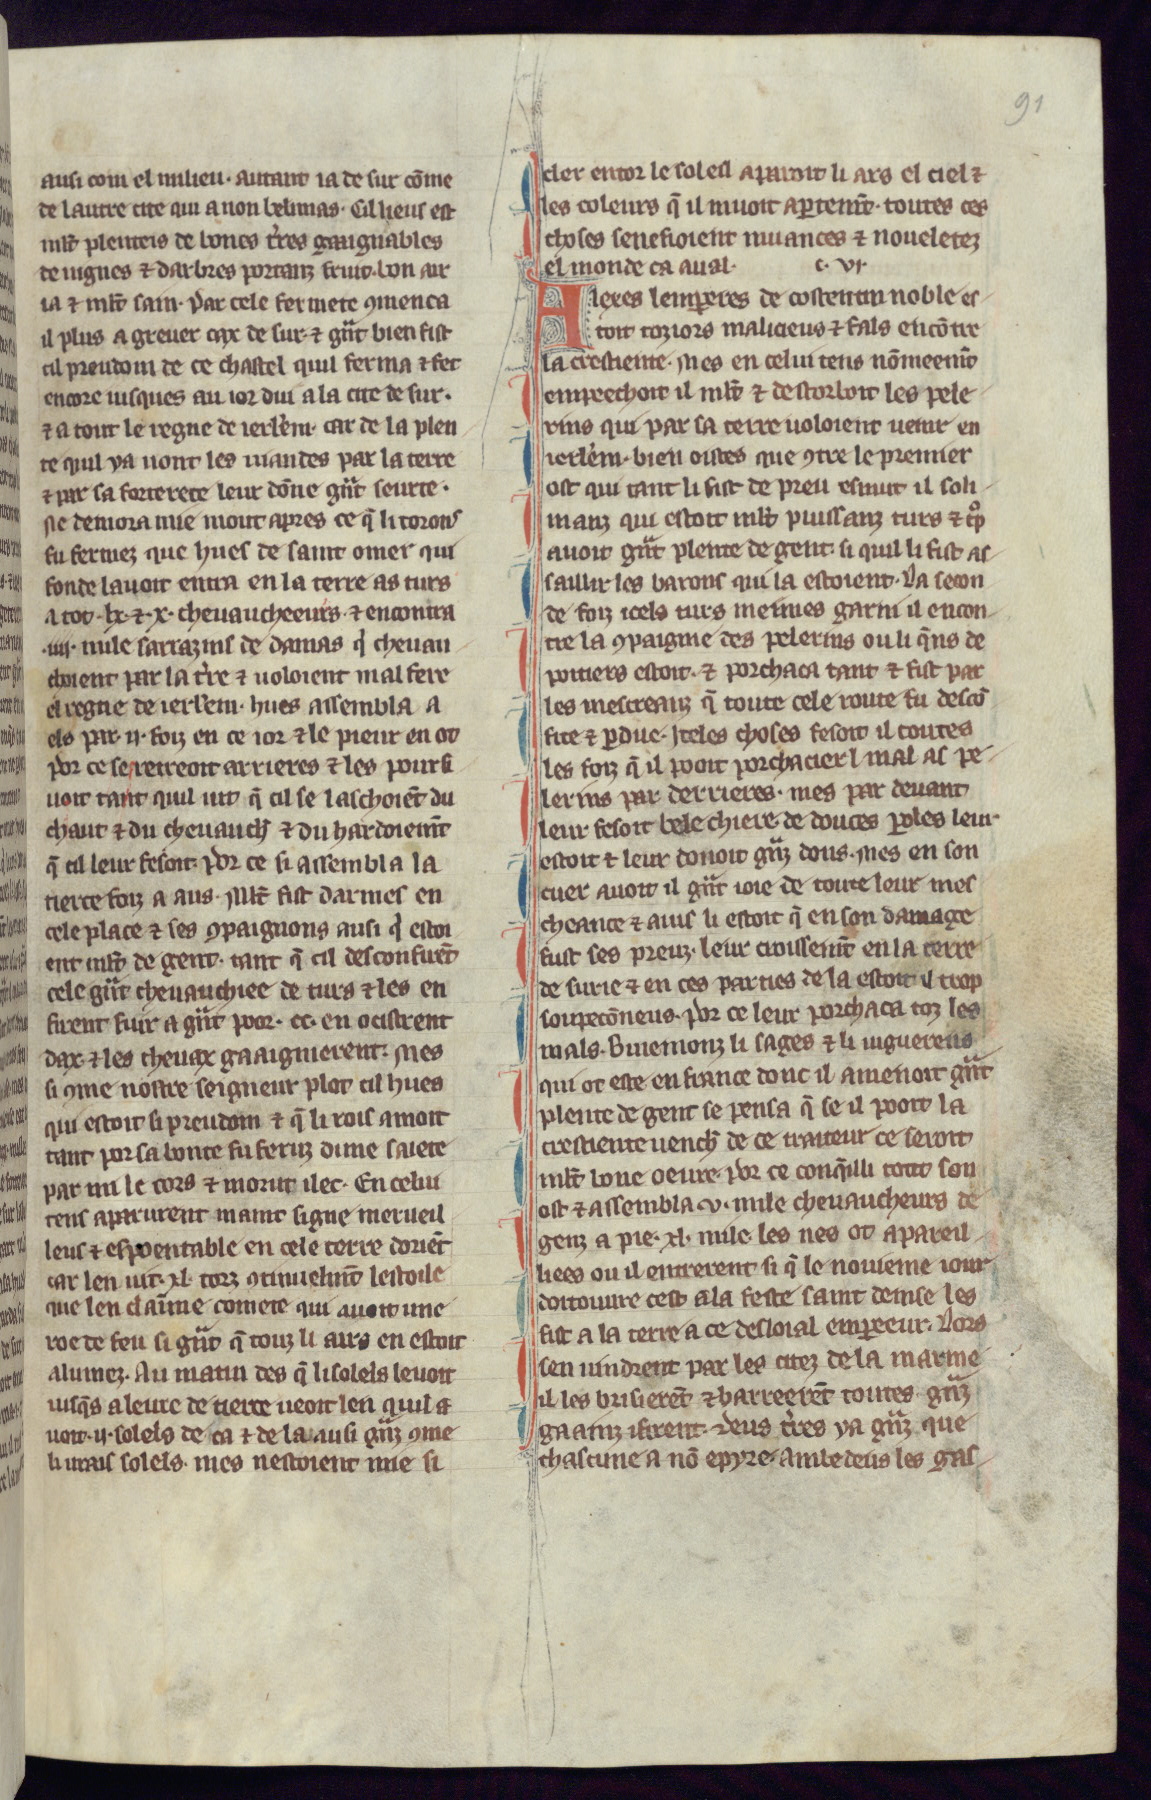 91
ausi com el milieu. autant ia de sur cōme
de lautre cite qui a non belinas. Cil lieus est
ml't plenteis de bones t'res gaaignables
de uignes ⁊ darbres portanz fruit. bon air
ia ⁊ ml't sain. Par cele fermete ꝯmenca
il plus a greuer cax de sur. ⁊ gn̄t bien fist
cil preudom de ce chastel quil ferma ⁊ fet
encore iusques au ior dui a la cite de sur.
⁊ a tout le regne de ierl'em. car de la plen
te quil ya uont les uiandes par la terre
⁊ par sa forterece leur dōne gn̄t seurte.
Ne demora mie mout apres ce q̄ li torons
fu fermez que hues de saint omer qui
fonde lauoit entra en la terre as turs
a tot .lx. ⁊ .x. cheuaucheeurs. ⁊ encontra
.iiii. mile sarrazins de damas q̄ cheuau
choient par la t're ⁊ uoloient mal fere
el regne de ierl'em. hues assembla a
els par .ii. foiz en ce ior ⁊ le pieur en ot
Por ce se retreoit arrieres ⁊ les poursi
uoit tant quil uit q̄ cil se laschoiēt du
chaut ⁊ du cheuauch' ⁊ du hardoiem̄t
q̄ cil leur fesoit. Por ce si assembla la
tierce foiz a aus. Ml't fist darmes en
cele place ⁊ ses ꝯpaignons ausi q̄ estoi
ent ml't de gent. tant q̄ cil desconfirēt
cele gn̄t cheuauchiee de turs ⁊ les en
firent fuir a gn̄t poor. cc. en ocistrent
dax ⁊ les cheuax gaaignierent. Mes
si ꝯme nostre seigneur plot cil hues
qui estoit si preudom ⁊ q̄ li rois amoit
tant por sa bonte fu feruz dune saiete
par mi le cors ⁊ morut ilec. En celui
tens aparurent maint signe merueil
leus ⁊ espoentable en cele terre doriēt
car len uit .xl. iorz ꝯtinuelm̄t lestoile
que len claīme comete qui auoit une
roe de feu si gn̄t q̄ touz li airs en estoit
alumez. Au matin des q̄ li solels leuoit
iusq̄s a leure de tierce ueoit len quil a
uoit .ii. solels de ca ⁊ de la ausi gn̄z ꝯme
li urais solels. mes nestoient mie si
cler entor le soleil aparoit li ars el ciel ⁊
les coleurs q̄ il muoit aꝑtem̄t. toutes ces
choses senefioient muances ⁊ noueletez
el monde ca aual. c. vi.
Alexes lempereres de costentinnoble es
toit toziors malicieus ⁊ fals encōtre
la crestiente. Mes en celui tens nōmeem̄t
empeechoit il ml't ⁊ destorboit les pele
rins qui par sa terre uoloient uenir en
ierl'em. bien oistes que ꝯtre le premier
ost qui tant li fist de preu esmut il soli
manz qui estoit ml't puissanz turs ⁊ tp̄
auoit gn̄t plente de gent. si quil li fist as
saillir les barons qui la estoient. La secon
de foiz icels turs meimes garni il encon
tre la ꝯpaignie des pelerins ou li q̄ns de
poitiers estoit. ⁊ porchaca tant ⁊ fist par
les mescreanz q̄ toute cele route fu descō
fite ⁊ ꝑdue. Iteles choses fesoit il toutes
les foiz q̄ il pooit porchacier l mal as pe
lerins par derrieres. mes par deuant
leur fesoit bele chiere. de douces ꝑoles leur
estoit ⁊ leur donoit gn̄z dons. Mes en son
cuer auoit il gn̄t ioie de toute leur mes
cheance ⁊ auis li estoit q̄ en son damage
fust ses preuz. leur croissem̄t en la terre
de surie ⁊ en ces parties de la estoit il trop
soupecōneus. Por ce leur porchaca toz les
mals. Buiemonz li sages ⁊ li uiguereus
qui ot este en france dont il amenoit gn̄t
plente de gent se pensa q̄ se il pooit la
crestiente uench' de ce traiteur ce seroit
ml't bone oeure. Por ce conq̄illi tout son
ost ⁊ assembla .v. mile cheuaucheurs de
genz a pie .xl. mile. les nes ot apareil
liees ou il entrerent si q̄ le nouieme iour
doitouure cest a la feste saint denise les
fist a la terre a ce desloial empereeur. Lors
sen uindrent par les citez de la marine
il les brisierēt ⁊ barreerēt toutes. gn̄z
gaainz ifirent. Deus t'res ya gn̄z que
chascune a nō epyre. ambedeus les gas